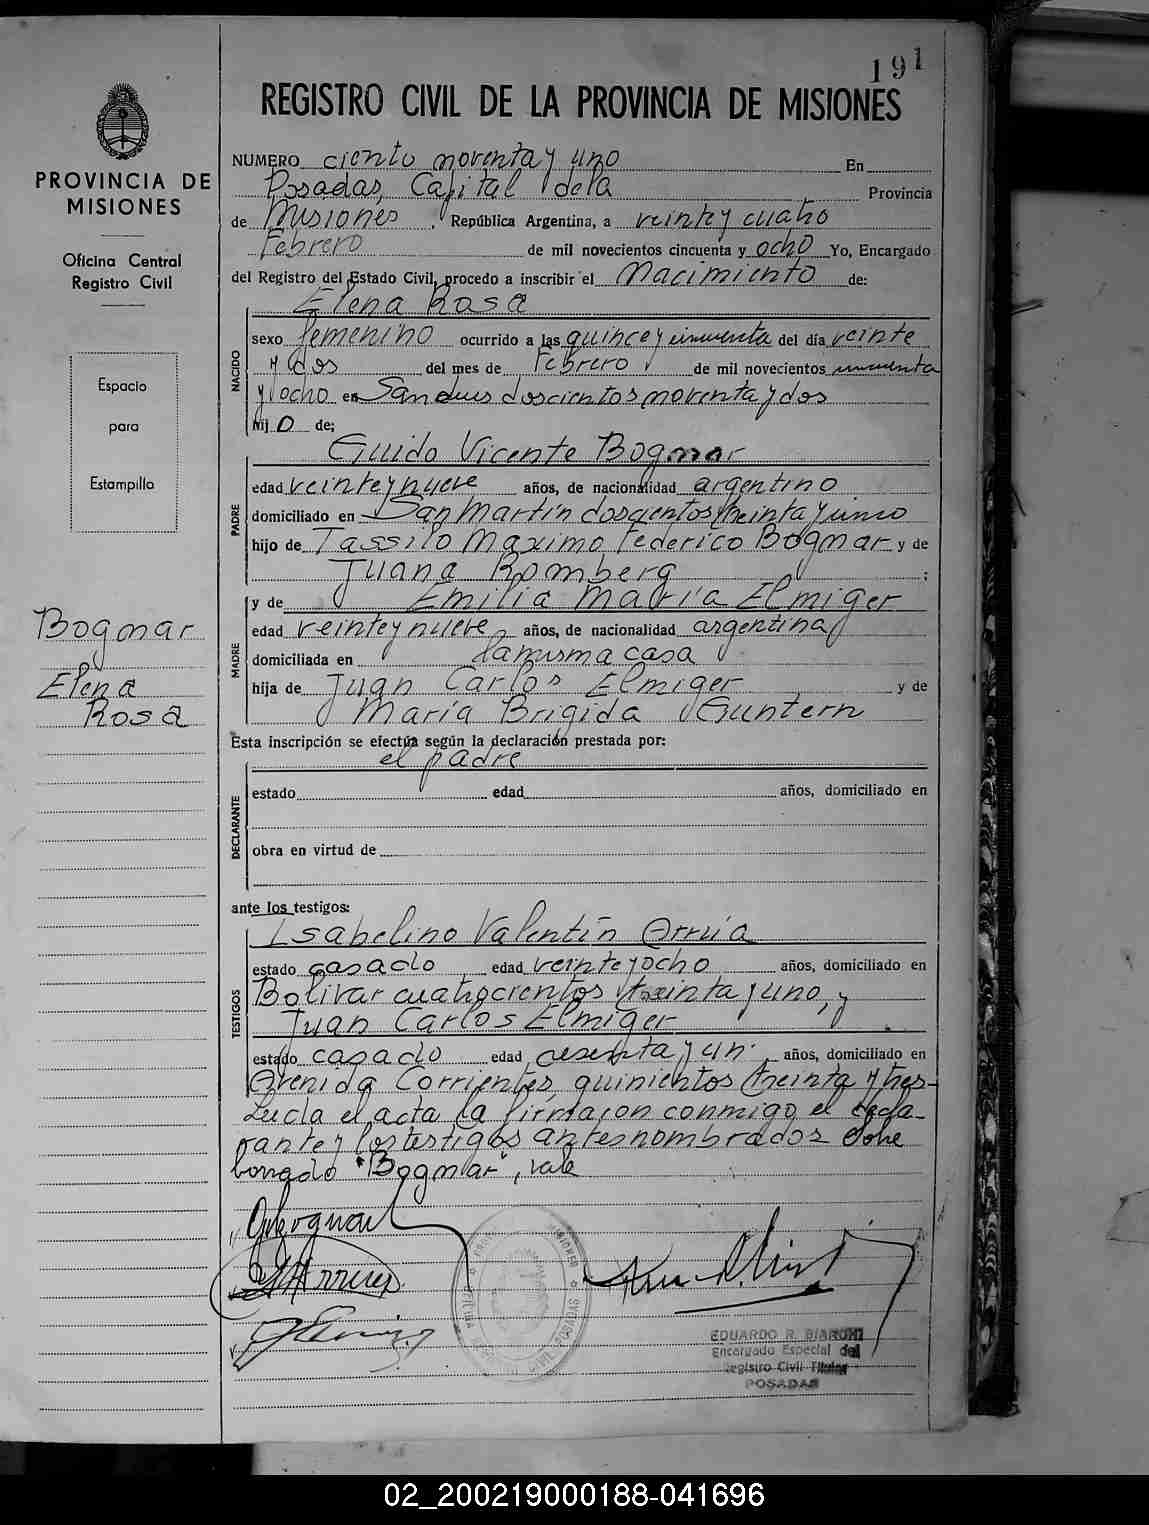 191
REGISTRO CIVIL DE LA PROVINCIA DE MISIONES
PROVINCIA DE
MISIONES
Oficina Central
Registro Civil
Espacio
para
Estampilla
Bogmar
Elena
Rosa
NUMERO ciento noventa y uno En
Posadas, Capital de la Provincia
de Misiones, República Argentina, a veinte y cuatro
Febrero de mil novecientos cincuenta y ocho Yo, Encargado
del Registro del Estado Civil, procedo a inscribir el Nacimiento de:
Elena Rosa
NACIDO
sexo femenino ocurrido a las quince y cincuenta del día veinte
y dos del mes de Febrero de mil novecientos cincuenta
y ocho en San Luis doscientos noventa y dos
hijo de:
Guido Vicente Bogmar
PADRE
edad veinte y nueve años, de nacionalidad argentino
domiciliado en San Martín doscientos treinta y cinco
hijo de Tassilo Maximo Federico Bogmar y de
Juana Romberg;
y de Emilia María Elmiger
MADRE
edad veinte y nueve años, de nacionalidad argentina
domiciliada en la misma casa
hija de Juan Carlos Elmiger y de
María Brigida Guntern
Esta inscripción se efectúa según la declaración prestada por:
el padre
DECLARANTE
estado edad años, domiciliado en
obra en virtud de
ante los testigos:
Isabelino Valentín Arrúa
TESTIGOS
estado casado edad veinte y ocho años, domiciliado en
Bolivar cuatrocientos treinta y uno, y
Juan Carlos Elmiger
estado casado edad sesenta y un años, domiciliado en
Avenida Corrientes, quinientos treinta y tres-
Leida el acta la firman conmigo el decla-
rante y los testigos antes nombrados Sobre
borrado "Bogmar", vale
EDUARDO R. BIANCHI
Encargado Especial del
Registro Civil Titular
POSADAS
02_200219000188-041696